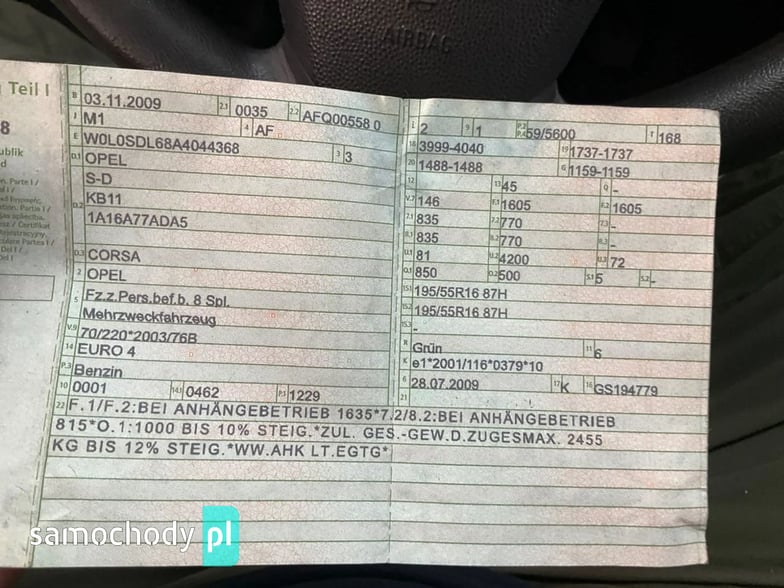 AIRBAG
Teil I
8
B 03.11.2009 2.1 0035 2.2 AFQ00558 0
J M1 4 AF
E W0L0SDL68A4044368 3 3
D.1 OPEL
D.2 S-D
KB11
1A16A77ADA5
D.3 CORSA
2 OPEL
5 Fz.z.Pers.bef.b. 8 Spl.
Mehrzweckfahrzeug
V.9 70/220*2003/76B
14 EURO 4
P.3 Benzin
10 0001 14.1 0462 P.1 1229
L 2 9 1 P.2 P.4 59/5600 T 168
18 3999-4040 19 1737-1737
20 1488-1488 G 1159-1159
12 13 45 Q -
V.7 146 F.1 1605 F.2 1605
7.1 835 7.2 770 7.3 -
8.1 835 8.2 770 8.3 -
U.1 81 U.2 4200 U.3 72
O.1 850 O.2 500 S.1 5 S.2 -
15.1 195/55R16 87H
15.2 195/55R16 87H
15.3 -
R Grün 11 6
K e1*2001/116*0379*10
6 28.07.2009 17 K 16 GS194779
21
22 F.1/F.2:BEI ANHÄNGEBETRIEB 1635*7.2/8.2:BEI ANHÄNGEBETRIEB
815*O.1:1000 BIS 10% STEIG.*ZUL. GES.-GEW.D.ZUGESMAX. 2455
KG BIS 12% STEIG.*WW.AHK LT.EGTG*
samochody pl